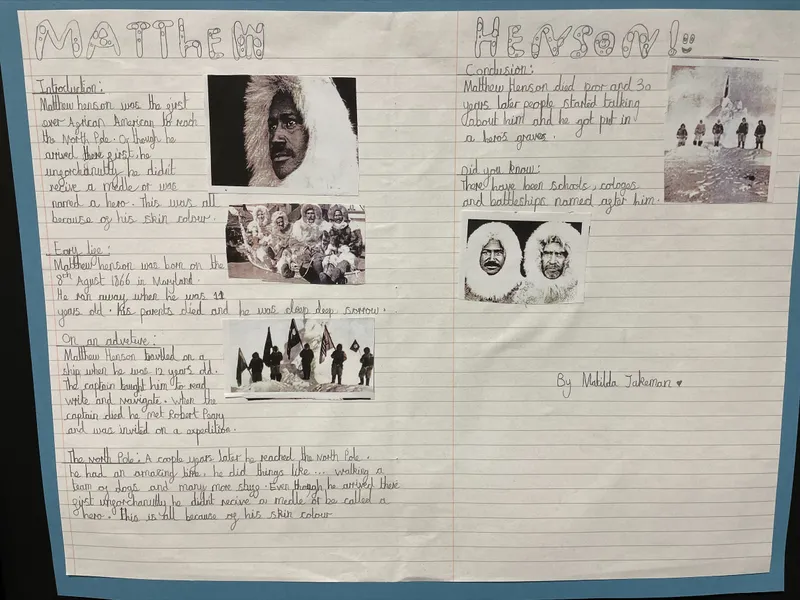 MATTHEW
Introduction:
Matthew henson was the first
ever African American to reach
the North Pole. Or though he
arrived there first, he
unforchanuttly he didn't
recive a medle or was
named a hero. This was all
because of his skin colour.
Eary life:
Matthew henson was born on the
8th Agust 1866 in Maryland.
He ran away when he was 11
years old. his parents died and he was deep deep sorrow.
On an advetive:
Matthew Henson bavlled on a
ship when he was 12 years old.
The captain taught him to read
write and navigate. When the
captain died he met Robert Peary
and was invited on a expedition.
The north Pole: A couple years later he reached the North Pole.
he had an amazing time, he did things like... walking a
team of dogs and many more stuff. Even though he arrived there
first unforchanuttly he didn't recive a medle or be called a
hero. This is all because of his skin colour
HENSON!
Conclusion:
Matthew Henson died poor and 30
years later people started talking
about him and he got put in
a hero's graves.
Did you know:
There have been schools, cologes
and battleships named after him.
By Matilda Jakeman